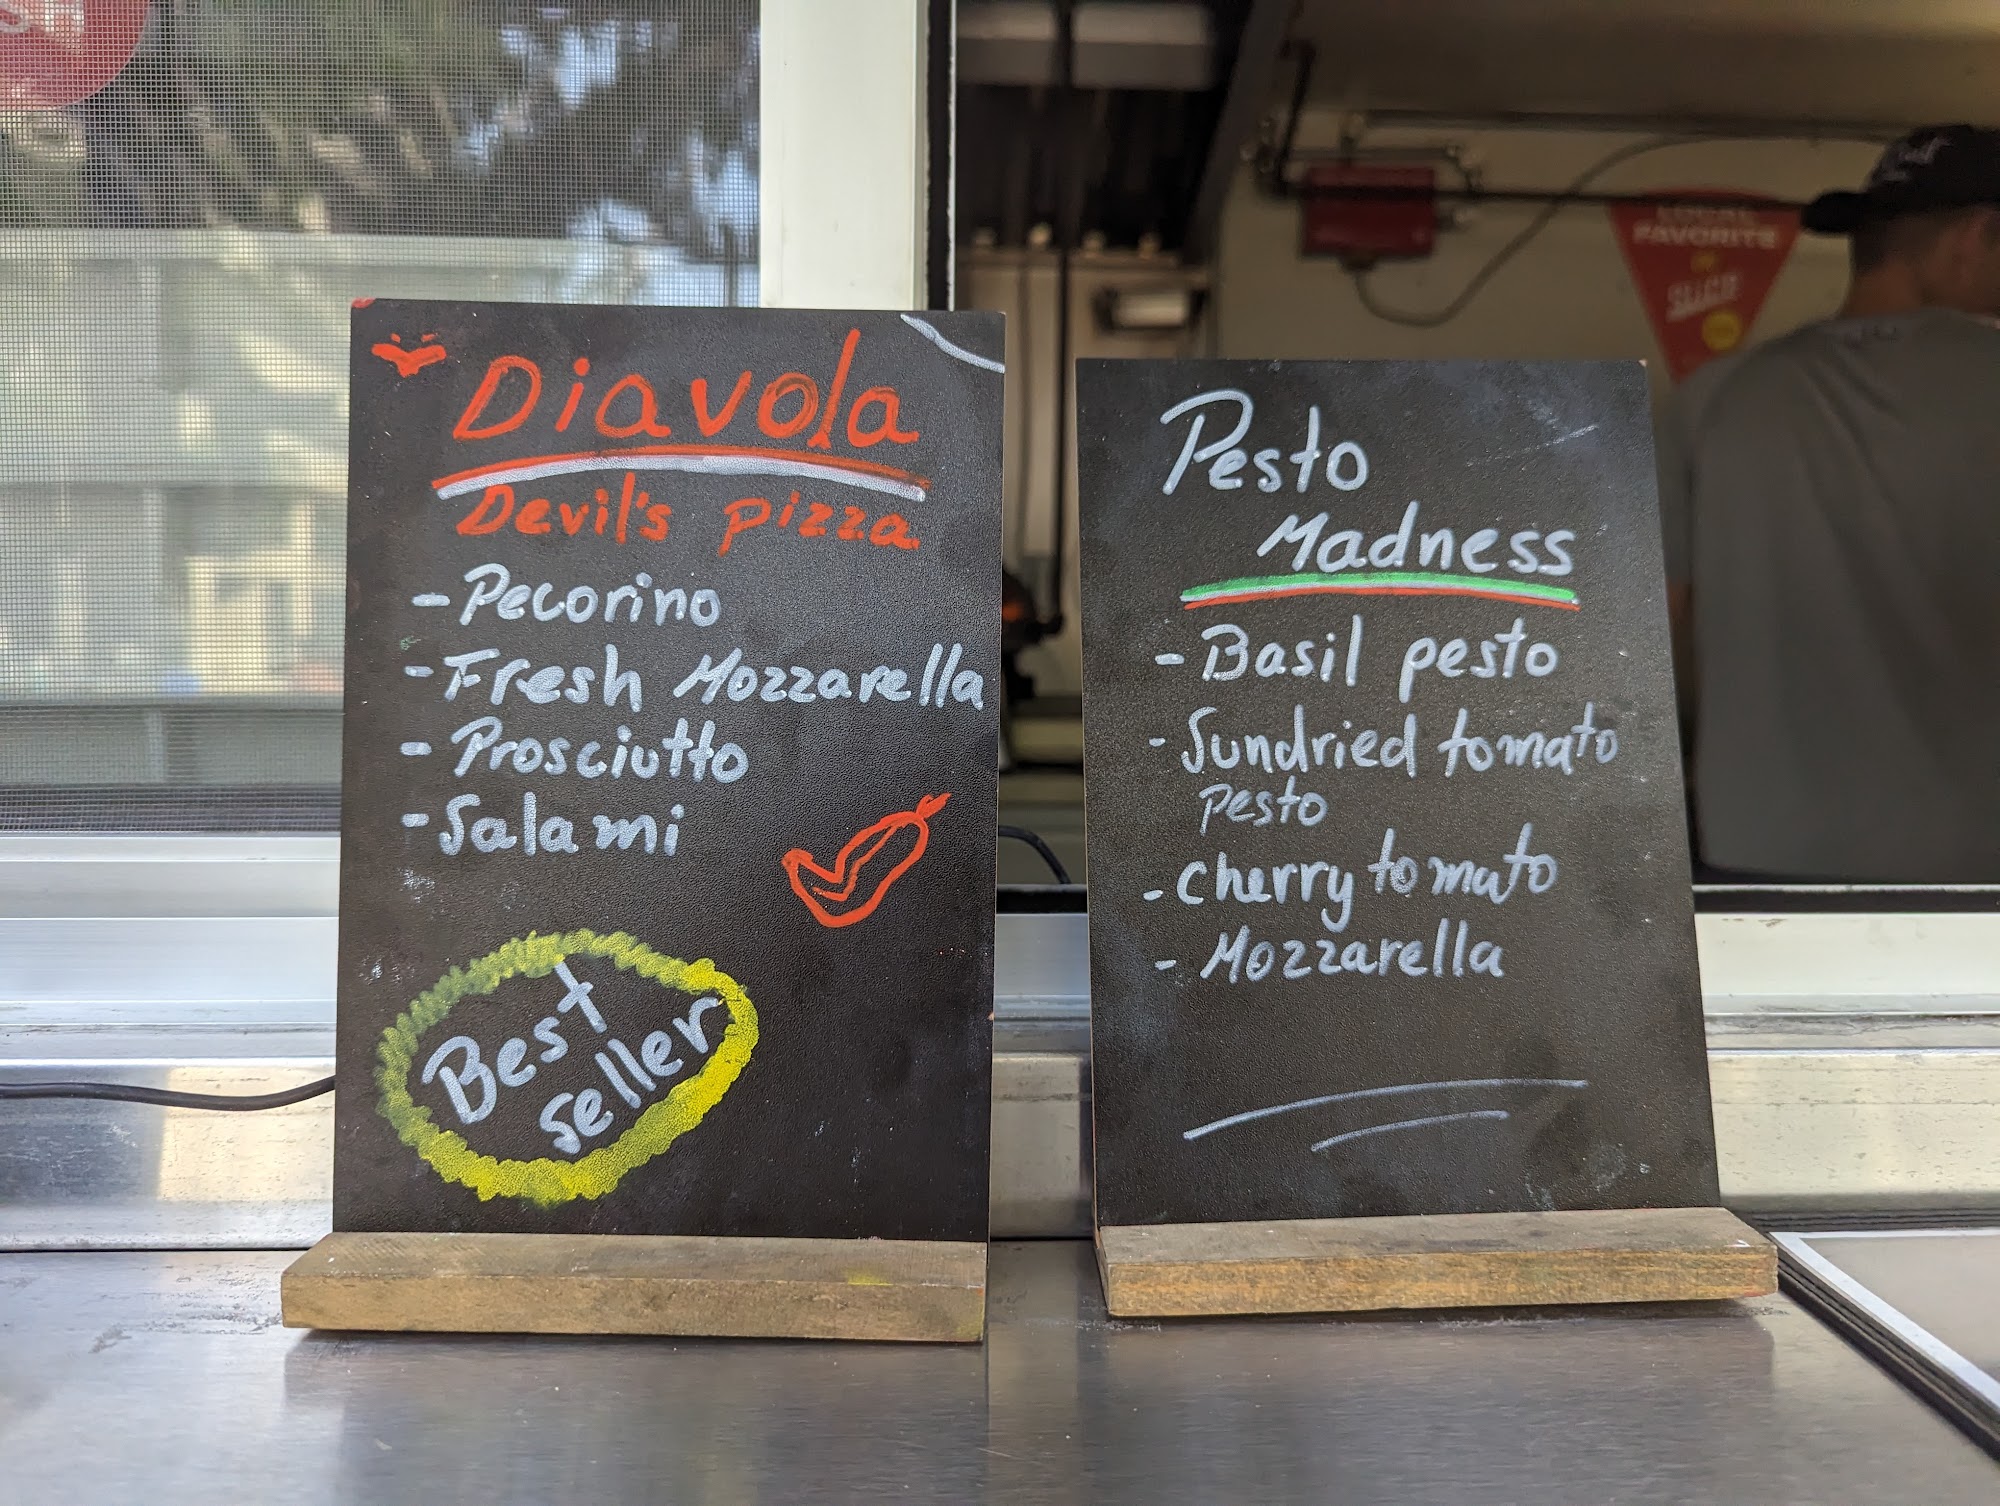 Diavola
Devil's pizza
- Pecorino
- Fresh Mozzarella
- Prosciutto
- Salami
Best
seller
Pesto
Madness
- Basil pesto
- Sundried tomato
pesto
- Cherry tomato
- Mozzarella
LOCAL
FAVORITE
SLICE